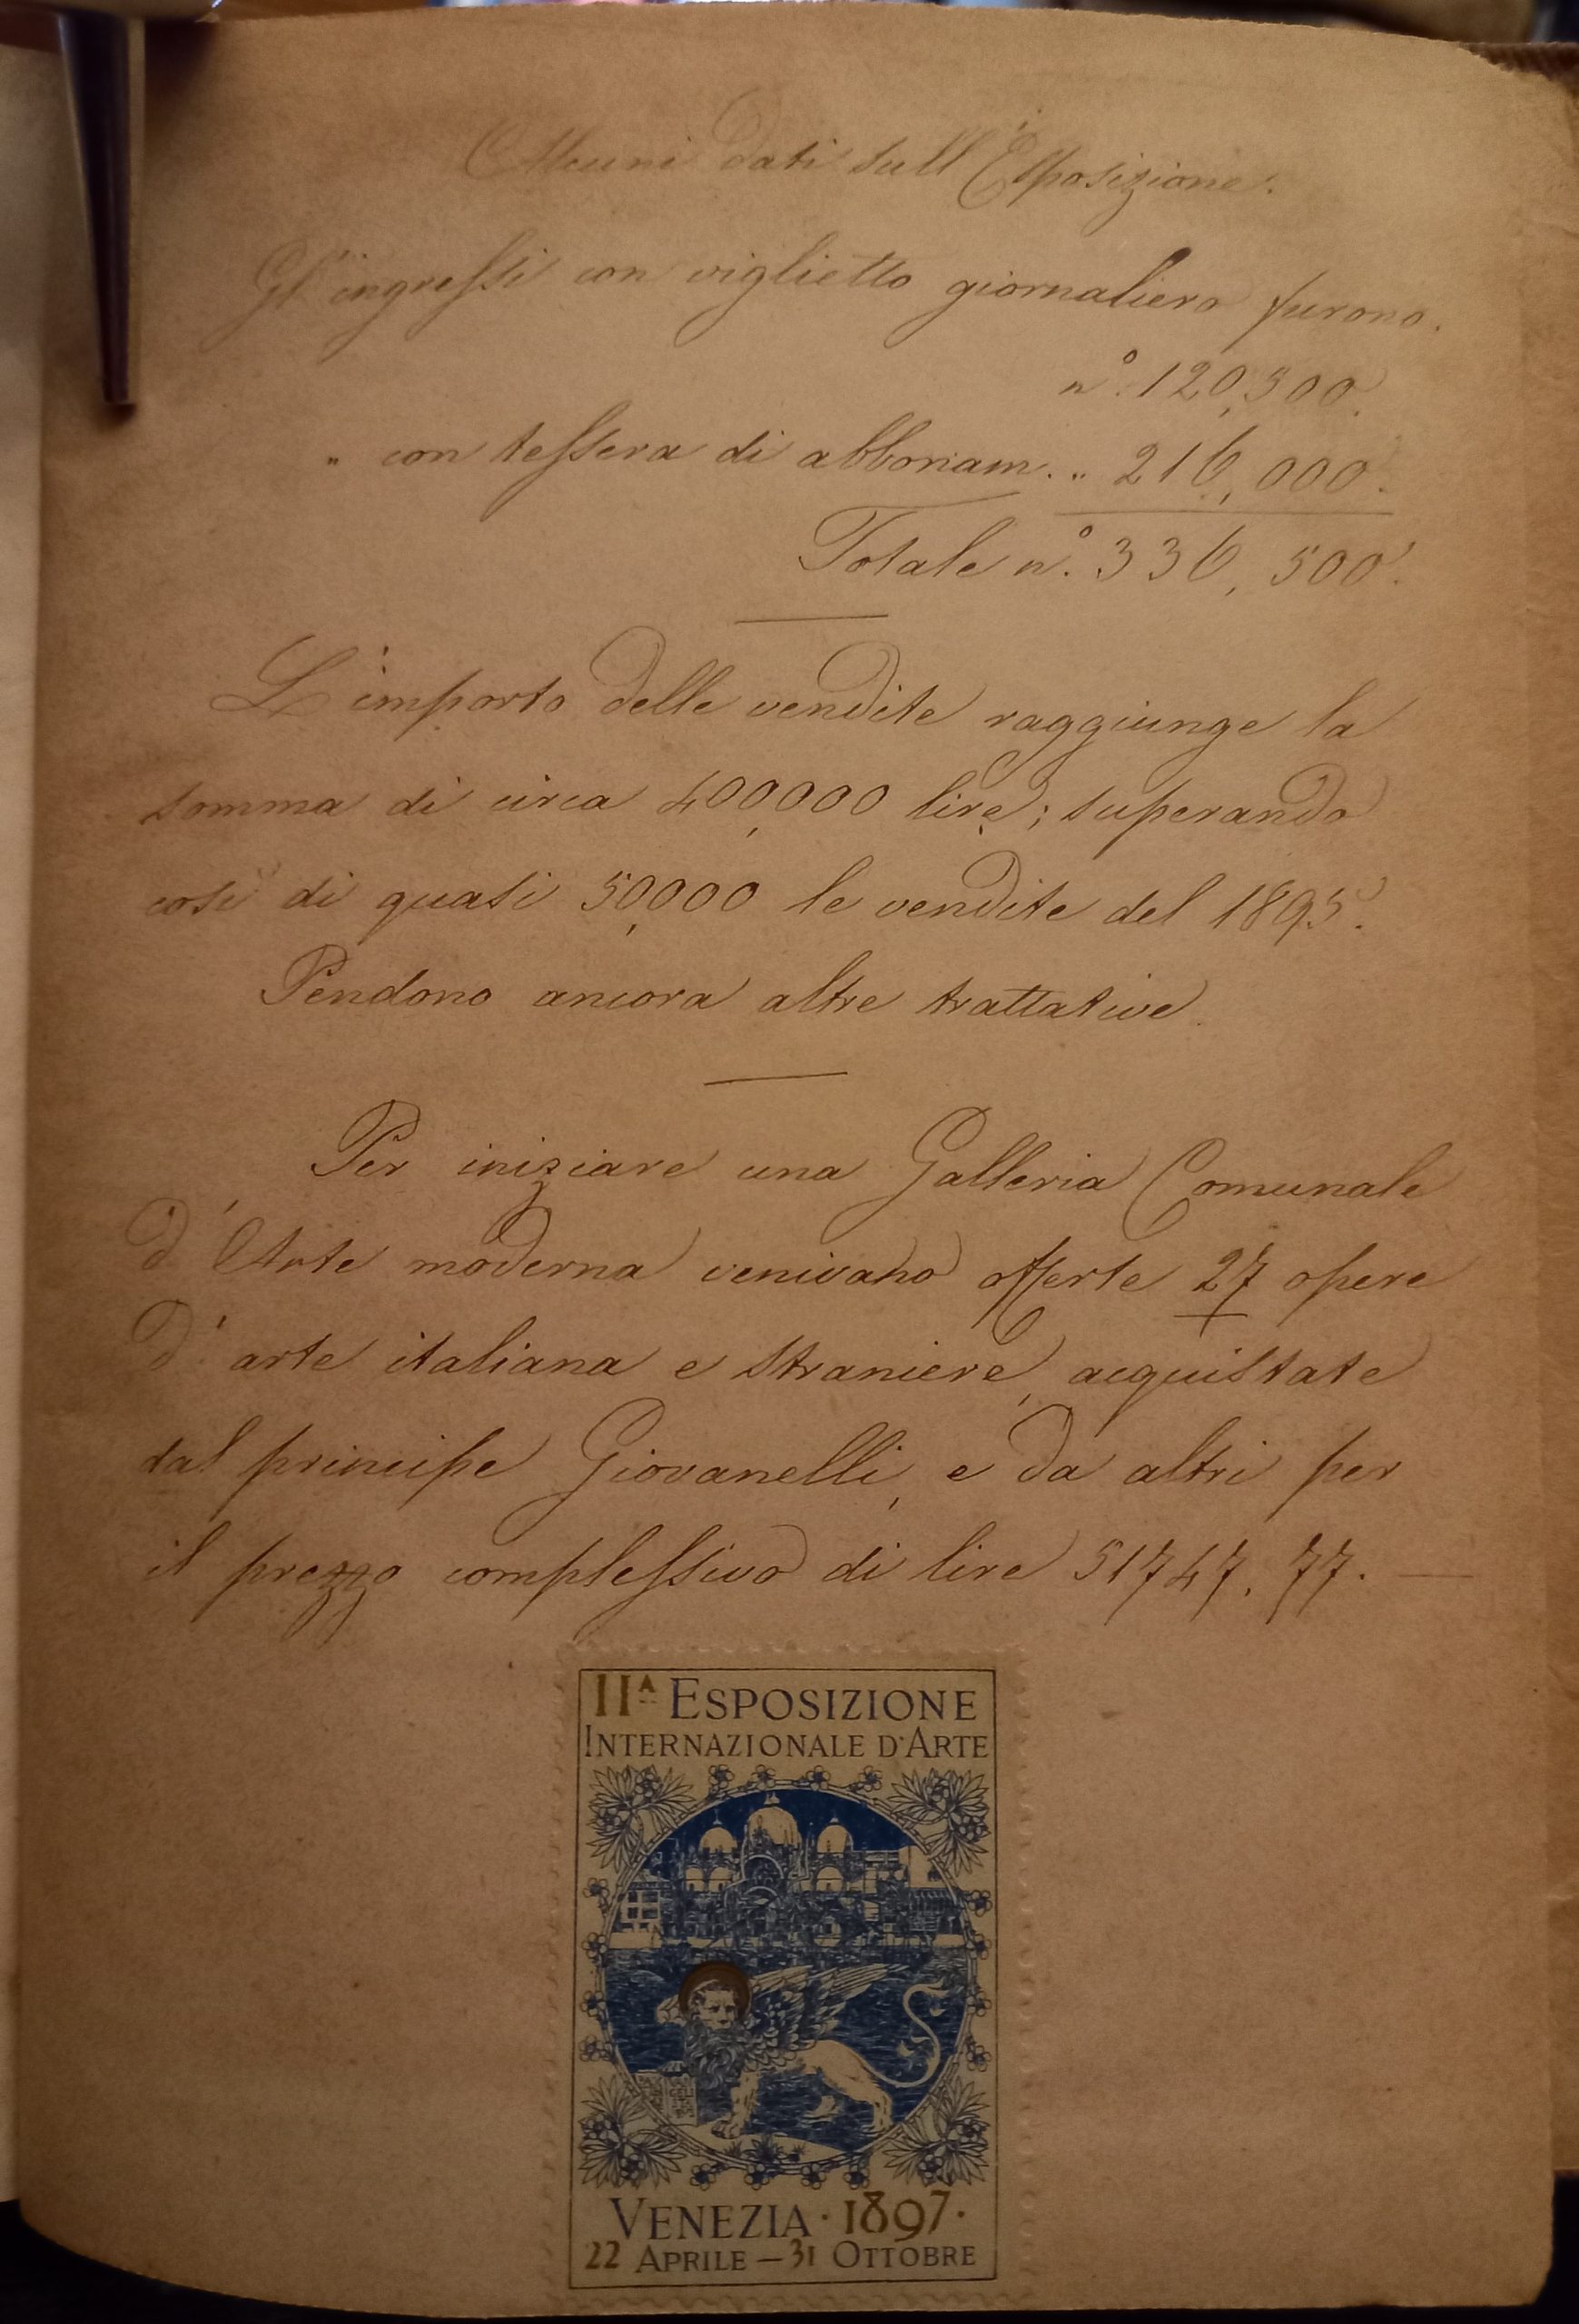 Alcuni dati sull'Esposizione.
Gl'ingressi con viglietto giornaliero furono.
n.° 120,500.
" con tessera di abbonam. " 216,000.
Totale n.° 336,500.
L'importo delle vendite raggiunge la
somma di circa 400,000 lire; superando
così di quasi 50,000 le vendite del 1895.
Pendono ancora altre trattative.
Per iniziare una Galleria Comunale
d'Arte moderna venivano offerte 27 opere
d'arte italiana e straniere, acquistate
dal principe Giovanelli, e da altri per
il prezzo complessivo di lire 51747.77. —
IIA ESPOSIZIONE
INTERNAZIONALE D'ARTE
VENEZIA · 1897 ·
22 APRILE — 31 OTTOBRE